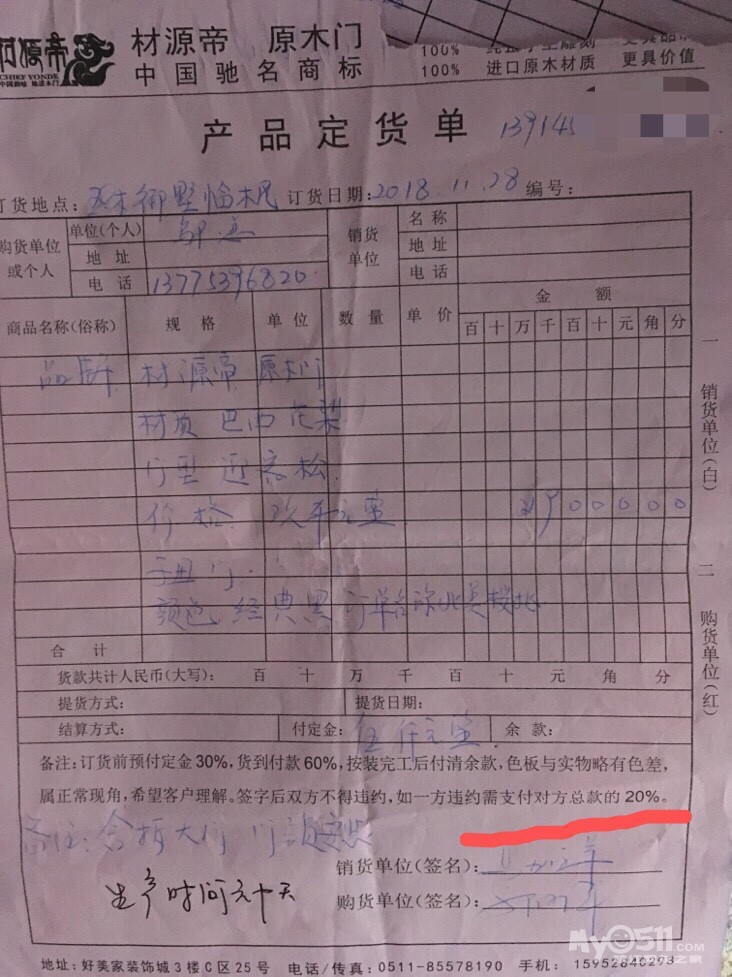 材源帝 原木门
CHIEF YONDE
中国驰名商标
100%
100% 进口原木材质 更具价值
产品定货单
139145
订货地点: 订货日期: 2018.11.28 编号:
购货单位或个人
单位(个人)
地址
电话 13775396820
销货单位
名称
地址
电话
商品名称(俗称) 规格 单位 数量 单价 金额
百 十 万 千 百 十 元 角 分
品牌 材源帝 原木门
材质 巴西花梨
门型 迎客松
价格 玖千元整 ¥900000
子母门
颜色 经典黑
合计
货款共计人民币(大写): 百 十 万 千 百 十 元 角 分
提货方式: 提货日期:
结算方式: 付定金: 伍仟元整 余款:
备注:订货前预付定金30%,货到付款60%,按装完工后付清余款,色板与实物略有色差,
属正常现角,希望客户理解。签字后双方不得违约,如一方违约需支付对方总款的20%。
备注: 含拆大门
销货单位(签名):
生产时间六十天
购货单位(签名):
地址:好美家装饰城3楼C区25号 电话/传真:0511-85578190 手机:15952840293
一 销货单位(白)
二 购货单位(红)
My0511.com